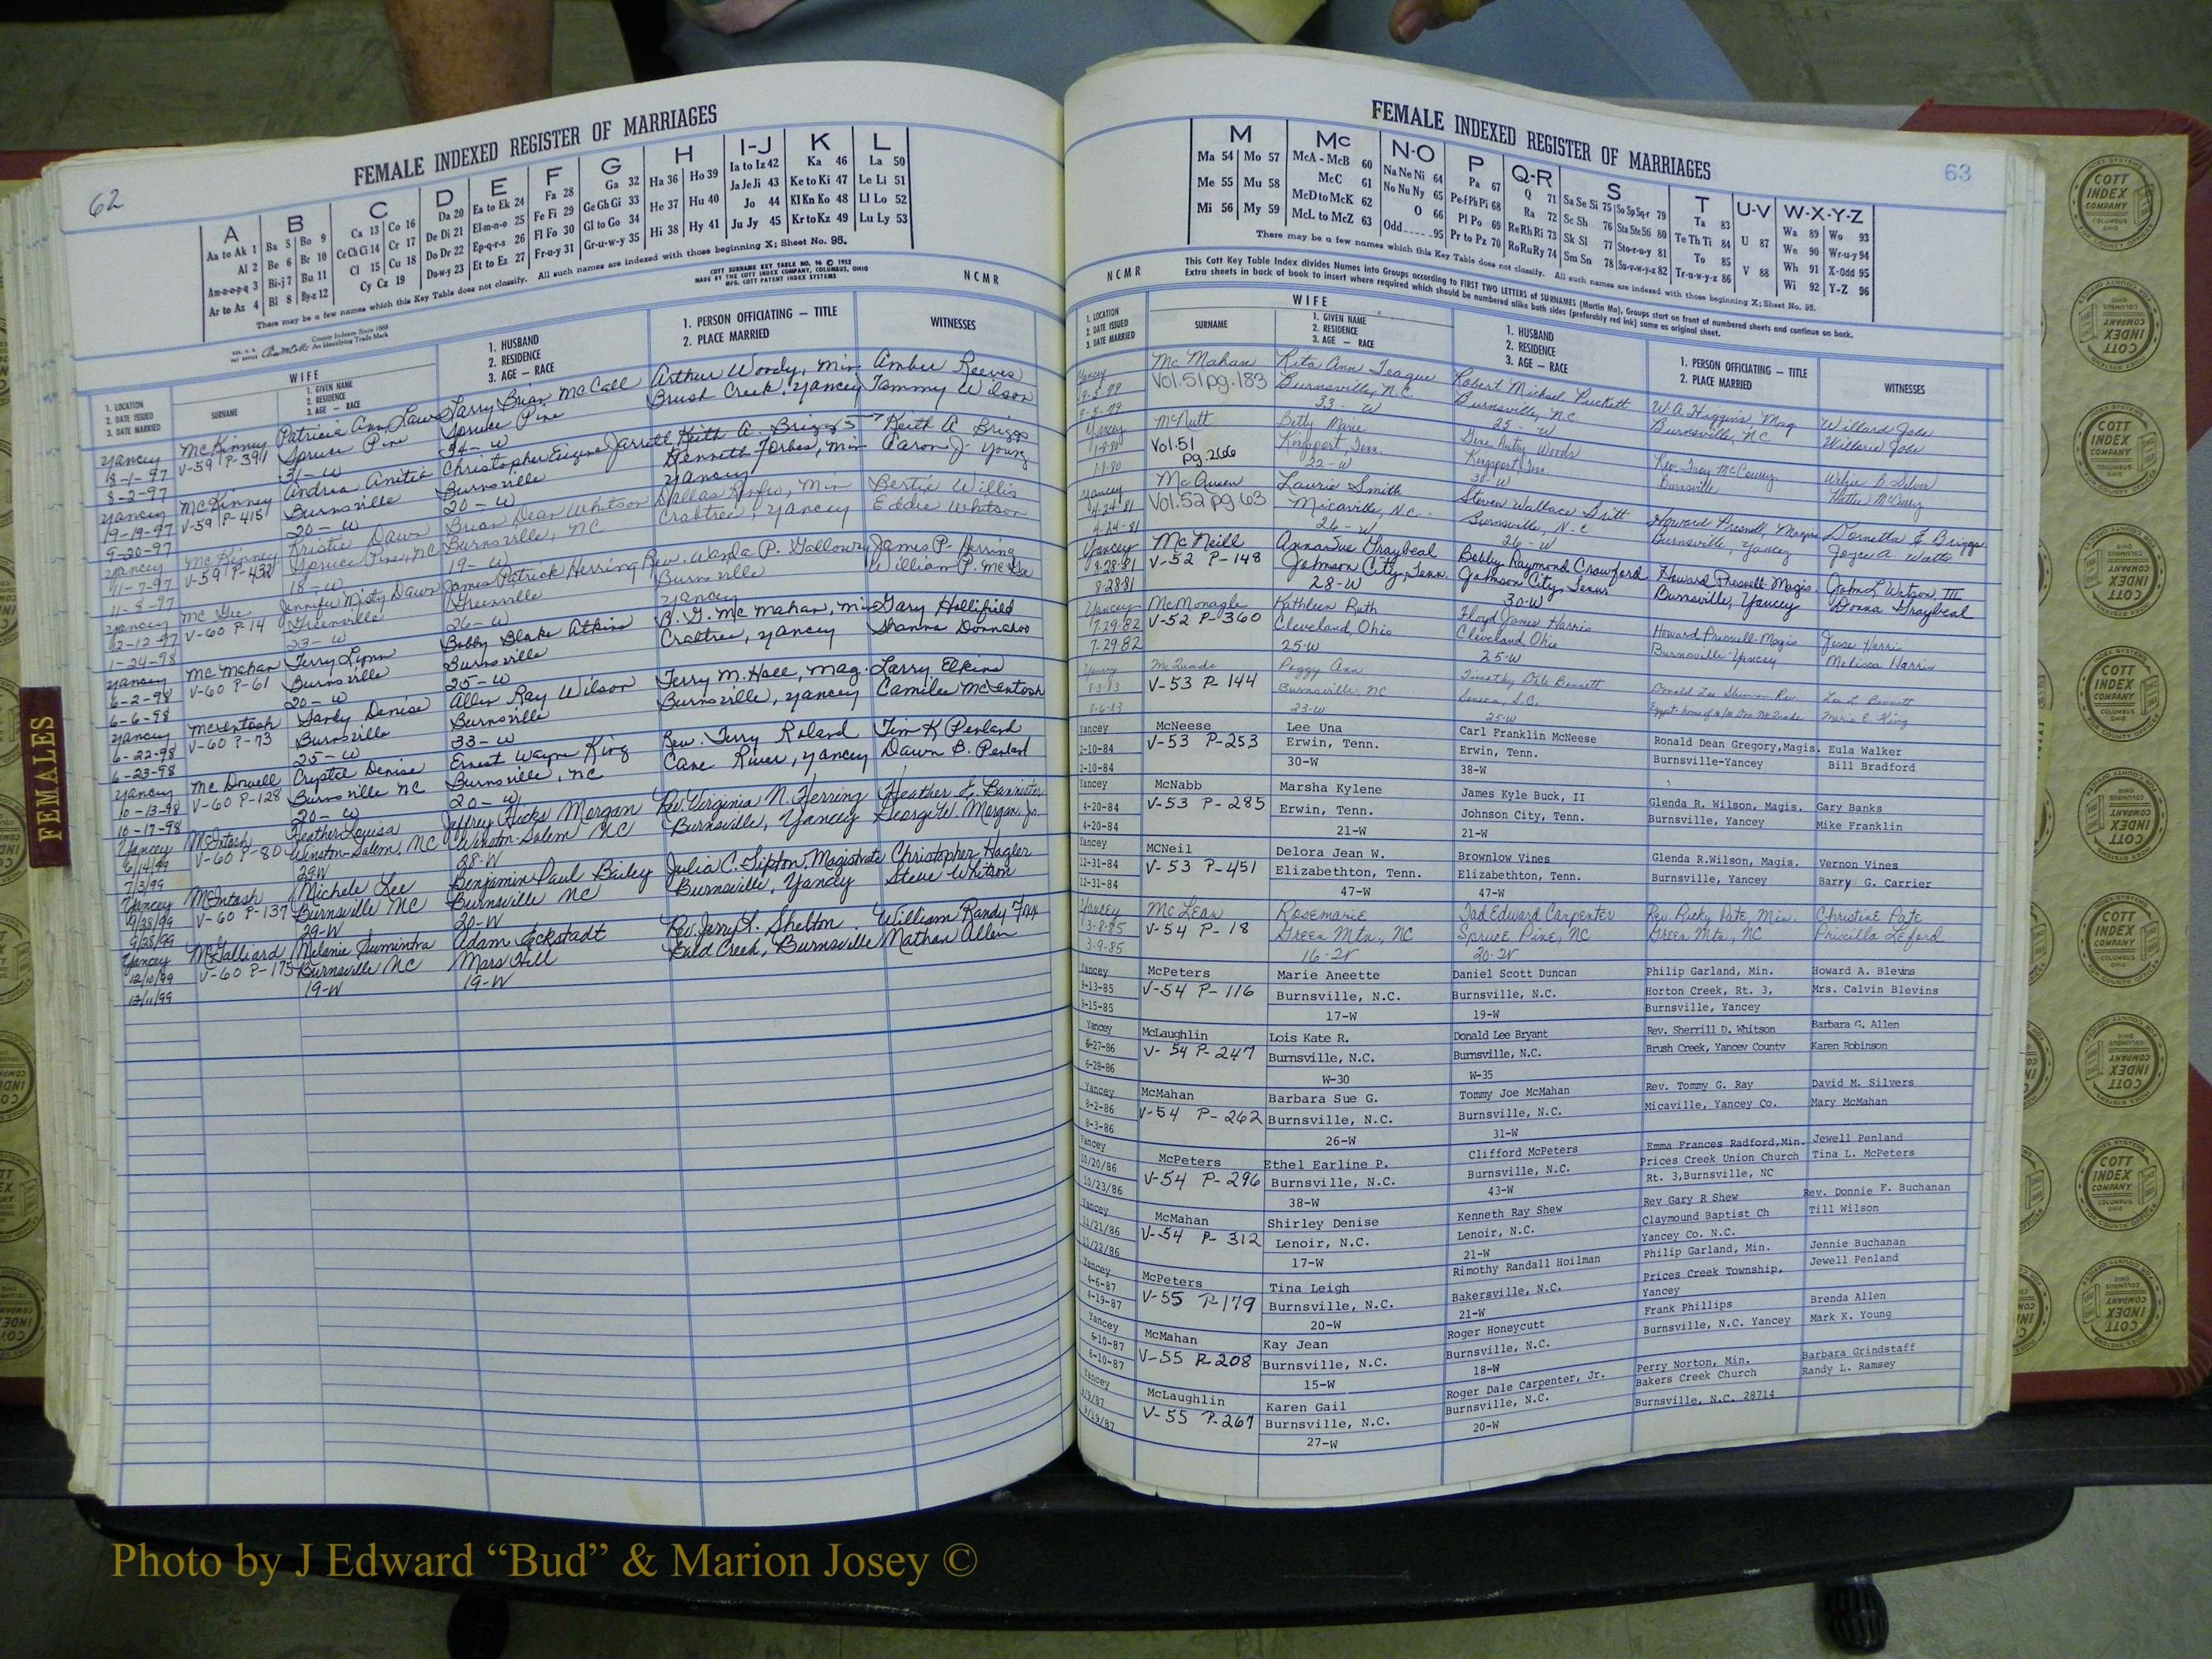 62
FEMALE INDEXED REGISTER OF MARRIAGES
A B C D E F G H I-J K L
Aa to Ak 1 Ba 5 Bo 9 Ca 13 Co 16 Da 20 Ea to Ek 24 Fa 28 Ga 32 Ha 36 Ho 39 Ia to Iz 42 Ka 46 La 50
Al 2 Be 6 Br 10 Ce Ch Ci 14 Cr 17 De Di 21 El-m-n-o 25 Fe Fi 29 Ge Gh Gi 33 He 37 Hu 40 Ja Je Ji 43 Ke to Ki 47 Le Li 51
Am-n-o-p-q 3 Bi-j 7 Bu 11 Cl 15 Cu 18 Do Dr 22 Ep-q-r-s 26 Fl Fo 30 Gl to Go 34 Hi 38 Hy 41 Jo 44 Kl Kn Ko 48 Ll Lo 52
Ar to Az 4 Bl 8 By-z 12 Cy Cz 19 Du-w-y 23 Et to Ez 27 Fr-u-y 31 Gr-u-w-y 35 Ju Jy 45 Kr to Kz 49 Lu Ly 53
There may be a few names which this Key Table does not classify. All such names are indexed with those beginning X; Sheet No. 95.
County Indexes Since 1888
An Identifying Trade Mark
COTT SURNAME KEY TABLE NO. 96 © 1952
MADE BY THE COTT INDEX COMPANY, COLUMBUS, OHIO
MFG. COTT PATENT INDEX SYSTEMS
NCMR
WIFE
1. LOCATION
2. DATE ISSUED
3. DATE MARRIED
SURNAME
1. GIVEN NAME
2. RESIDENCE
3. AGE — RACE
1. HUSBAND
2. RESIDENCE
3. AGE — RACE
1. PERSON OFFICIATING — TITLE
2. PLACE MARRIED
WITNESSES
Yancey McKinney Patricia Ann Laws Larry Brian McCall Arthur Woody, Min Amber Reeves
8-1-97 V-59 P-391 Spruce Pine Spruce Pine Brush Creek, Yancey Tammy Wilson
8-2-97 31-W 34-W
Yancey McKinney Andrea Anitia Christopher Eugene Jarrett Keith A. Briggs Keith A Briggs
9-19-97 V-59 P-415 Burnsville Burnsville Kenneth Forbes, Min Aaron J. Young
9-20-97 20-W 20-W Yancey
Yancey McKinney Kristie Dawn Brian Dean Whitson Dallas Renfro, Min Bertie Willis
11-7-97 V-59 P-432 Spruce Pine, NC Burnsville, NC Crabtree, Yancey Eddie Whitson
11-8-97 18-W 19-W
Yancey McGee Jennifer Misty Dawn James Patrick Herring Rev. Wanda P. Galloway James P. Herring
12-12-97 V-60 P-14 Greenville Greenville Burnsville William P.
1-24-98 23-W 26-W Yancey
Yancey McMahan Terry Lynn Bobby Blake Atkins B. G. McMahan, Min Gary Hollifield
6-2-98 V-60 P-61 Burnsville Burnsville Crabtree, Yancey Shanna Donnahoo
6-6-98 20-W 25-W
Yancey McIntosh Sandy Denise Allen Ray Wilson Terry M. Hall, Mag. Larry Elkins
6-22-98 V-60 P-73 Burnsville Burnsville Burnsville, Yancey Camilee McIntosh
6-23-98 25-W 33-W
Yancey McDowell Crystal Denise Ernest Wayne King Rev. Terry Roland Tim K Penland
10-13-98 V-60 P-128 Burnsville NC Burnsville, NC Cane River, Yancey Dawn B. Penland
10-17-98 20-W 20-W
Yancey McIntosh Heather Louisa Jeffrey Hicks Morgan Rev. Virginia N. Herring Heather E. Bannister
6/14/99 V-60 P-80 Winston-Salem, NC Winston-Salem NC Burnsville, Yancey George W. Morgan, Jr.
7/3/99 29W 28-W
Yancey McIntosh Michele Lee Benjamin Paul Bailey Julia C. Tipton, Magistrate Christopher Hagler
9/28/99 V-60 P-137 Burnsville NC Burnsville NC Burnsville, Yancy Steve Whitson
9/28/99 29-W 20-W
Yancey McGalliard Melanie Sumintra Adam Eckstadt Rev. Jerry L. Shelton William Randy Fox
12/10/99 V-60 P-175 Burnsville NC Mars Hill Bald Creek, Burnsville Mathan Allen
12/11/99 19-W 19-W
FEMALES
63
FEMALE INDEXED REGISTER OF MARRIAGES
M Mc N-O P Q-R S T U-V W-X-Y-Z
Ma 54 Mo 57 McA - McB 60 Na Ne Ni 64 Pa 67 Q 71 Sa Se Si 75 So Sp Sq-r 79 Ta 83 U 87 Wa 89 Wo 93
Me 55 Mu 58 McC 61 No Nu Ny 65 Pe-f Ph Pi 68 Ra 72 Sc Sh 76 Sta Ste Sti 80 Te Th Ti 84 V 88 We 90 Wr-u-y 94
Mi 56 My 59 McD to McK 62 O 66 Pl Po 69 Re Rh Ri 73 Sk Sl 77 Sto-r-u-y 81 To 85 Wh 91 X-Odd 95
McL to McZ 63 Odd 95 Pr to Pz 70 Ro Ru Ry 74 Sm Sn 78 Su-v-w-y-z 82 Tr-u-w-y-z 86 Wi 92 Y-Z 96
There may be a few names which this Key Table does not classify. All such names are indexed with those beginning X; Sheet No. 95.
This Cott Key Table Index divides Names into Groups according to FIRST TWO LETTERS of SURNAMES (Martin Ma), Groups start on front of numbered sheets and continue on back.
Extra sheets in back of book to insert where required which should be numbered alike both sides (preferably red ink) same as original sheet.
NCMR
WIFE
1. LOCATION
2. DATE ISSUED
3. DATE MARRIED
SURNAME
1. GIVEN NAME
2. RESIDENCE
3. AGE — RACE
1. HUSBAND
2. RESIDENCE
3. AGE — RACE
1. PERSON OFFICIATING — TITLE
2. PLACE MARRIED
WITNESSES
Yancey McMahan Rita Ann Teague Robert Michael Puckett W.A. Higgins, Mag Willard Jobe
9-5-79 Vol. 51 pg. 183 Burnsville, N.C. Burnsville, NC Burnsville, NC Willard Jobe
9-5-79 33 W 25-W
Yancey McNutt Betty Marie Gene Autry Woods Rev. Troy McCourry
1-1-80 Vol. 51 pg. 266 Kingsport, Tenn. Kingsport, Tenn Burnsville
1-1-80 22-W 30-W
Yancey McQueen Laurie Smith Steven Wallace Britt Howard Presnell, Magis Dornetta E Briggs
4-24-81 Vol. 52 pg 63 Micaville, N.C. Burnsville, N.C Burnsville, Yancey Joyce A. Watts
4-24-81 26-W 26-W
Yancey McNeill Anna Sue Graybeal Bobby Raymond Crawford Howard Presnell-Magis John L Watson, III
8-28-81 V-52 P-148 Johnson City, Tenn. Johnson City, Tenn Burnsville, Yancey Donna Graybeal
8-28-81 28-W 30-W
Yancey McMonagle Kathleen Ruth Floyd James Harris Howard Presnell-Magis Jesse Harris
7-29-82 V-52 P-360 Cleveland, Ohio Cleveland Ohio Burnsville-Yancey Melissa Harris
7-29-82 25-W 25-W
Yancey McQuade Peggy Ann Timothy Dale Bennett Donald Lee Rev. Lee L. Bennett
8-3-83 V-53 P-144 Burnsville, NC Seneca, S.C. Marie E. King
8-6-83 23-W 25-W
Yancey McNeese Lee Una Carl Franklin McNeese Ronald Dean Gregory,Magis. Eula Walker
2-10-84 V-53 P-253 Erwin, Tenn. Erwin, Tenn. Burnsville-Yancey Bill Bradford
2-10-84 30-W 38-W
Yancey McNabb Marsha Kylene James Kyle Buck, II Glenda R. Wilson, Magis. Gary Banks
4-20-84 V-53 P-285 Erwin, Tenn. Johnson City, Tenn. Burnsville, Yancey Mike Franklin
4-20-84 21-W 21-W
Yancey MCNEIL Delora Jean W. Brownlow Vines Glenda R.Wilson, Magis. Vernon Vines
12-31-84 V-53 P-451 Elizabethton, Tenn. Elizabethton, Tenn. Burnsville, Yancey Barry G. Carrier
12-31-84 47-W 47-W
Yancey McLean Rosemarie Tad Edward Carpenter Rev. Ricky Pate, Min. Christine Pate
3-8-85 V-54 P-18 Green Mtn., NC Spruce Pine, NC Green Mtn., NC Priscilla Leford
3-9-85 16-W 20-W
Yancey McPeters Marie Aneette Daniel Scott Duncan Philip Garland, Min. Howard A. Blevins
9-13-85 V-54 P-116 Burnsville, N.C. Burnsville, N.C. Horton Creek, Rt. 3, Mrs. Calvin Blevins
9-15-85 17-W 19-W Burnsville, Yancey
Yancey McLaughlin Lois Kate R. Donald Lee Bryant Rev. Sherrill D. Whitson Barbara G. Allen
6-27-86 V-54 P-247 Burnsville, N.C. Burnsville, N.C. Brush Creek, Yancey County Karen Robinson
6-28-86 W-30 W-35
Yancey McMahan Barbara Sue G. Tommy Joe McMahan Rev. Tommy G. Ray David M. Silvers
8-2-86 V-54 P-262 Burnsville, N.C. Burnsville, N.C. Micaville, Yancey Co. Mary McMahan
8-3-86 26-W 31-W
Yancey McPeters Ethel Earline P. Clifford McPeters Emma Frances Radford,Min. Jewell Penland
10/20/86 V-54 P-296 Burnsville, N.C. Burnsville, N.C. Prices Creek Union Church Tina L. McPeters
10/23/86 38-W 43-W Rt. 3,Burnsville, NC
Yancey McMahan Shirley Denise Kenneth Ray Shew Rev Gary R Shew Rev. Donnie F. Buchanan
11/21/86 V-54 P-312 Lenoir, N.C. Lenoir, N.C. Claymound Baptist Ch Till Wilson
11/22/86 17-W 21-W Yancey Co. N.C.
Yancey McPeters Tina Leigh Rimothy Randall Hoilman Philip Garland, Min. Jennie Buchanan
4-6-87 V-55 P-179 Burnsville, N.C. Bakersville, N.C. Prices Creek Township, Jewell Penland
4-19-87 20-W 21-W Yancey
Yancey McMahan Kay Jean Roger Honeycutt Frank Phillips Brenda Allen
6-10-87 V-55 P-208 Burnsville, N.C. Burnsville, N.C. Burnsville, N.C. Yancey Mark K. Young
6-10-87 15-W 18-W
Yancey McLaughlin Karen Gail Roger Dale Carpenter, Jr. Perry Norton, Min. Barbara Grindstaff
V-55 P-267 Burnsville, N.C. Burnsville, N.C. Bakers Creek Church Randy L. Ramsey
9/19/87 27-W 20-W Burnsville, N.C. 28714
COTT INDEX COMPANY COLUMBUS OHIO
Photo by J Edward “Bud” & Marion Josey ©